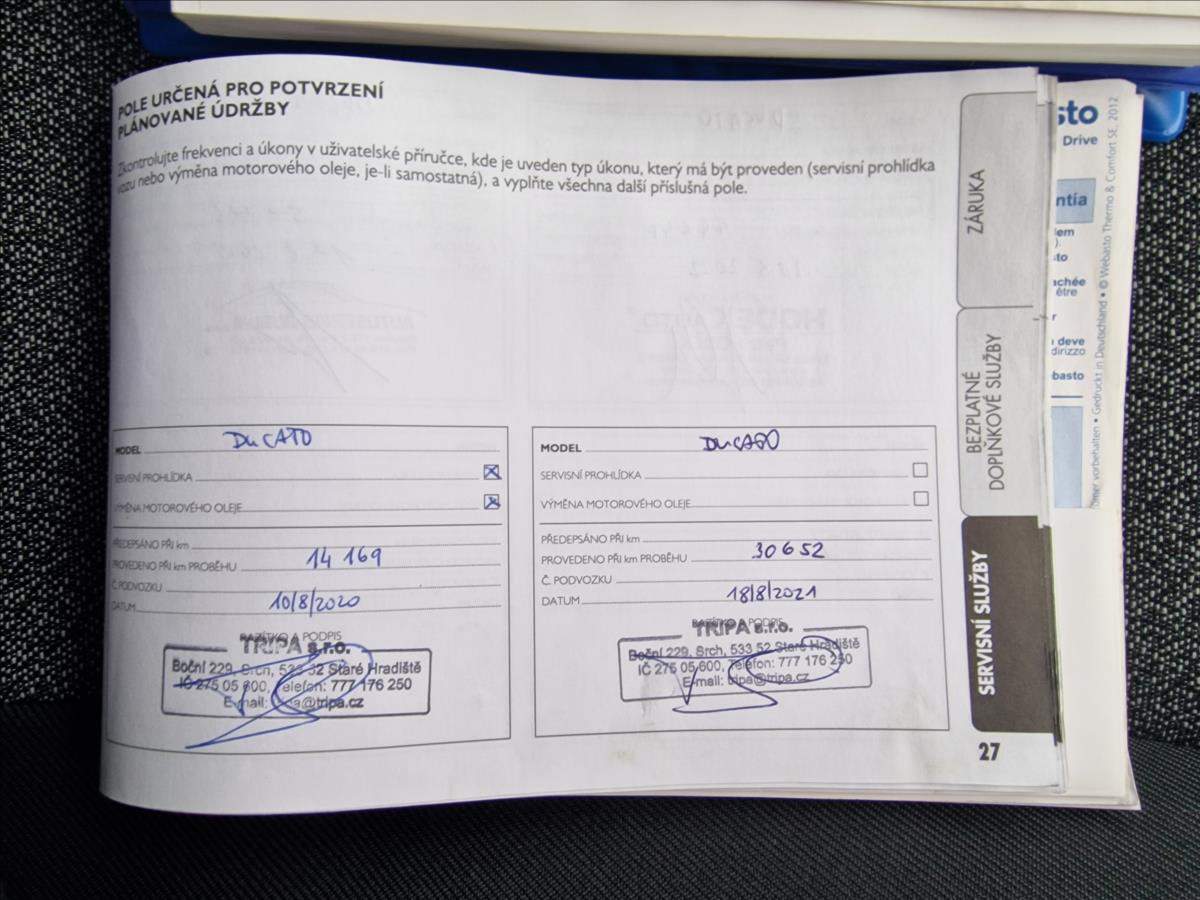 POLE URČENÁ PRO POTVRZENÍ
PLÁNOVANÉ ÚDRŽBY
Zkontrolujte frekvenci a úkony v uživatelské příručce, kde je uveden typ úkonu, který má být proveden (servisní prohlídka
vozu nebo výměna motorového oleje, je-li samostatná), a vyplňte všechna další příslušná pole.
MODEL DuCATO
SERVISNÍ PROHLÍDKA
VÝMĚNA MOTOROVÉHO OLEJE
PŘEDEPSÁNO PŘI km
PROVEDENO PŘI km PROBĚHU 14 169
Č. PODVOZKU
DATUM 10/8/2020
RAZÍTKO A PODPIS
TRIPA s.r.o.
Boční 229, Srch, 533 52 Staré Hradiště
IČ 275 05 600, Telefon: 777 176 250
E-mail: tripa@tripa.cz
MODEL DuCATO
SERVISNÍ PROHLÍDKA
VÝMĚNA MOTOROVÉHO OLEJE
PŘEDEPSÁNO PŘI km
PROVEDENO PŘI km PROBĚHU 30652
Č. PODVOZKU
DATUM 18/8/2021
RAZÍTKO A PODPIS
TRIPA s.r.o.
Boční 229, Srch, 533 52 Staré Hradiště
IČ 275 05 600, Telefon: 777 176 250
E-mail: tripa@tripa.cz
ZÁRUKA
BEZPLATNÉ
DOPLŇKOVÉ SLUŽBY
SERVISNÍ SLUŽBY
27
sto
Drive
ntía
lem
).
to
achée
être
r
deve
dirizzo
basto
vorbehalten • Gedruckt in Deutschland • © Webasto Thermo & Comfort SE, 2012